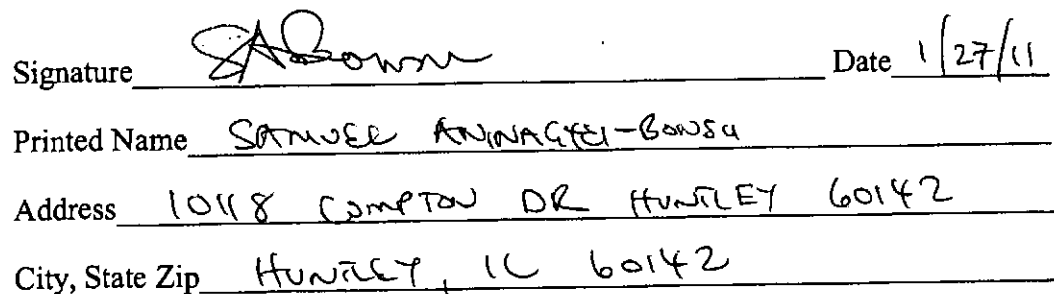 Signature SABonsu Date 1/27/11
Printed Name SAMUEL ANINAGYEI-BONSU
Address 10118 COMPTON DR HUNTLEY 60142
City, State Zip HUNTLEY, IL 60142